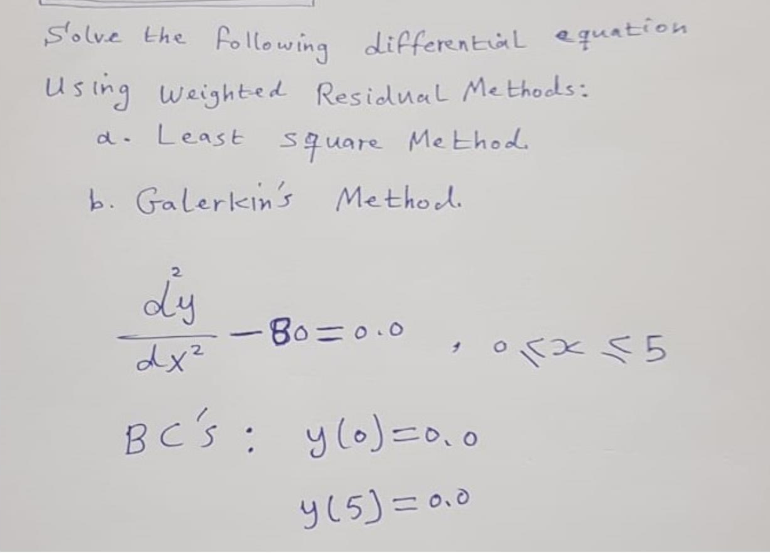 Solve the following differential equation
Using Weighted Residual Methods:
a. Least square Method.
b. Galerkin's Method.
d²y/dx² - 80 = 0.0 , 0 ≤ x ≤ 5
BC's : y(0) = 0.0
y(5) = 0.0